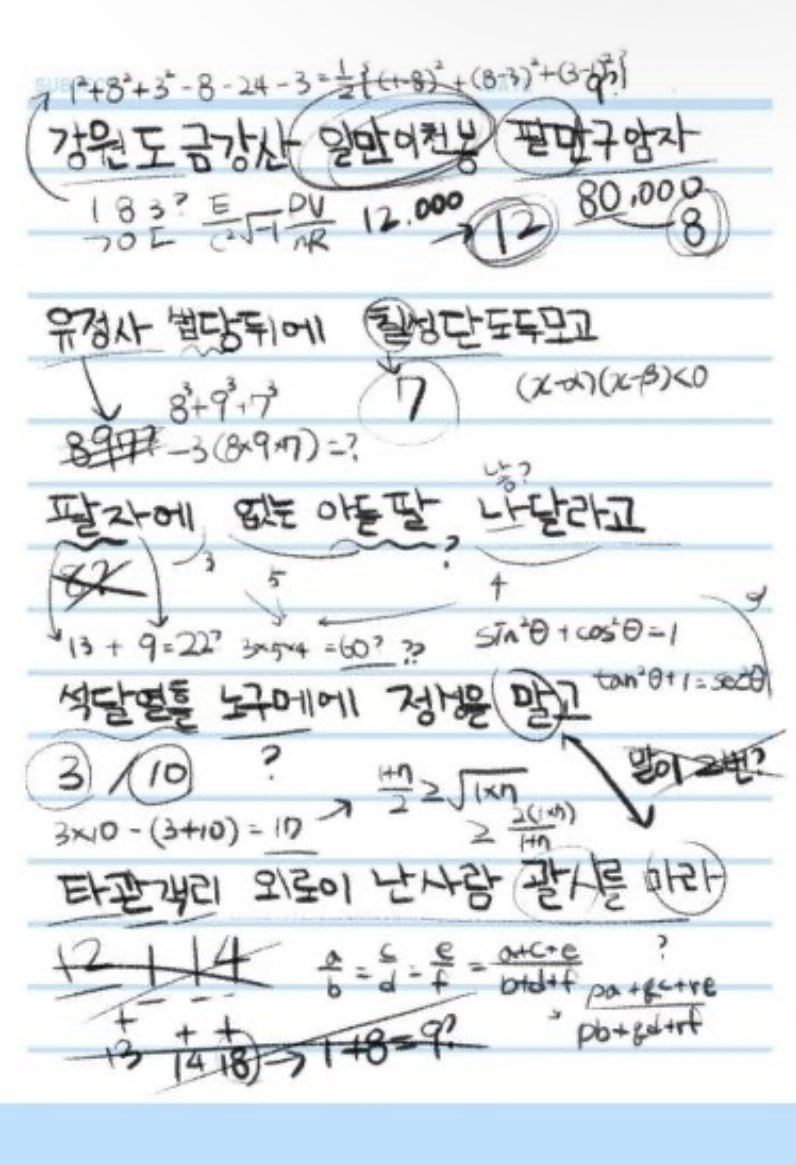 1²+8²+3²-8-24-3=½{(1-8)²+(8-3)²+(3-1)²}
강원도 금강산 일만이천봉 팔만구암자
183? E/C² √-1 PV/nR 12.000 → 12 80,000 8
유점사 법당뒤에 칠성단 도두모고
8³+9³+7³ 7 (x-α)(x-β)<0
897? -3(8×9×7)=?
낭?
팔자에 없는 아들팔 나달라고
82 3 5 ? 4
13+9=22? 3×5×4=60? ?? sin²θ+cos²θ=1
tan²θ+1=sec²θ
석달열흘 노구메에 정성을 말고
3/10 ? 말이 2번?
(1+n)/2 ≥ √(1×n)
3×10-(3+10)=17 ≥ 2(1×n)/(1+n)
타관객리 외로이 난사람 괄시를 마라
12 1 14 a/b=c/d=e/f=(a+c+e)/(b+d+f) ? (pa+qc+re)/(pb+qd+rf)
+ + +
13 14 18 → 1+8=9?